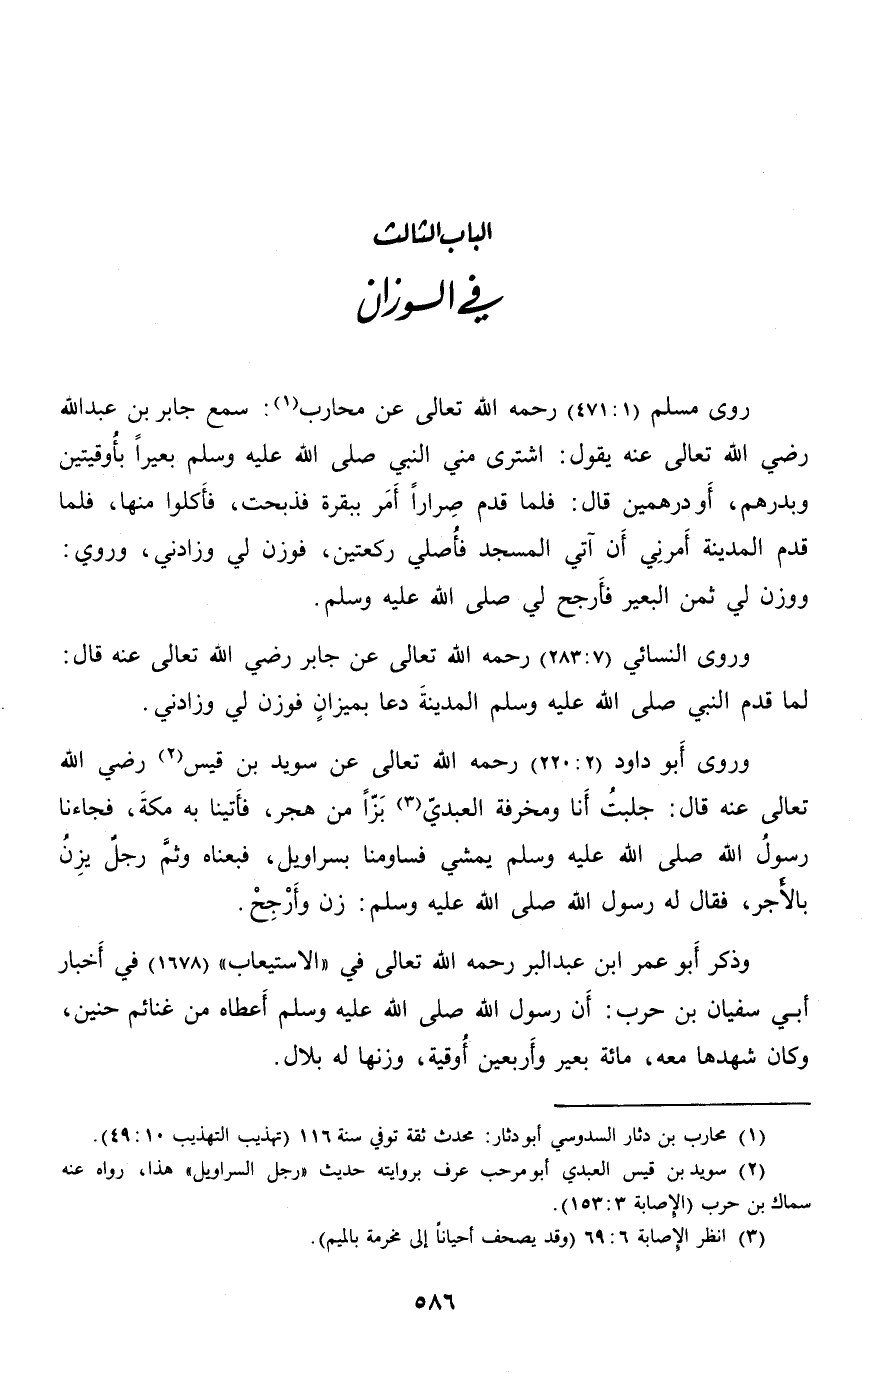 الباب الثالث
في الوزان
روى مسلم (١:٤٧١) رحمه الله تعالى عن محارب(١): سمع جابر بن عبدالله
رضي الله تعالى عنه يقول: اشترى مني النبي صلى الله عليه وسلم بعيراً بأُوقيتين
وبدرهم، أو درهمين قال: فلما قدم صِراراً أَمَر ببقرة فذبحت، فأَكلوا منها، فلما
قدم المدينة أمرنِي أَن آتي المسجد فأُصلي ركعتين، فوزن لي وزادني، وروي:
ووزن لي ثمن البعير فأَرجح لي صلى الله عليه وسلم.
وروى النسائي (٧:٢٨٣) رحمه الله تعالى عن جابر رضي الله تعالى عنه قال:
لما قدم النبي صلى الله عليه وسلم المدينةَ دعا بميزانٍ فوزن لي وزادني.
وروى أَبو داود (٢:٢٢٠) رحمه الله تعالى عن سويد بن قيس(٢) رضي الله
تعالى عنه قال: جلبتُ أَنا ومخرفة العبديّ(٣) بَزّاً من هجر، فأَتينا به مكةَ، فجاءنا
رسولُ الله صلى الله عليه وسلم يمشي فساومنا بسراويل، فبعناه وثمَّ رجلٌ يزِنُ
بالأَجر، فقال له رسول الله صلى الله عليه وسلم: زن وأَرْجِحْ.
وذكر أَبو عمر ابن عبدالبر رحمه الله تعالى في «الاستيعاب» (١٦٧٨) في أَخبار
أبي سفيان بن حرب: أَن رسول الله صلى الله عليه وسلم أَعطاه من غنائم حنين،
وكان شهدها معه، مائة بعير وأَربعين أُوقية، وزنها له بلال.
(١) محارب بن دثار السدوسي أبو دثار: محدث ثقة توفي سنة ١١٦ (تهذيب التهذيب ١٠:٤٩).
(٢) سويد بن قيس العبدي أبو مرحب عرف بروايته حديث «رجل السراويل» هذا، رواه عنه
سماك بن حرب (الإصابة ٣:١٥٣).
(٣) انظر الإصابة ٦:٦٩ (وقد يصحف أحياناً إلى مخرمة بالميم).
٥٨٦